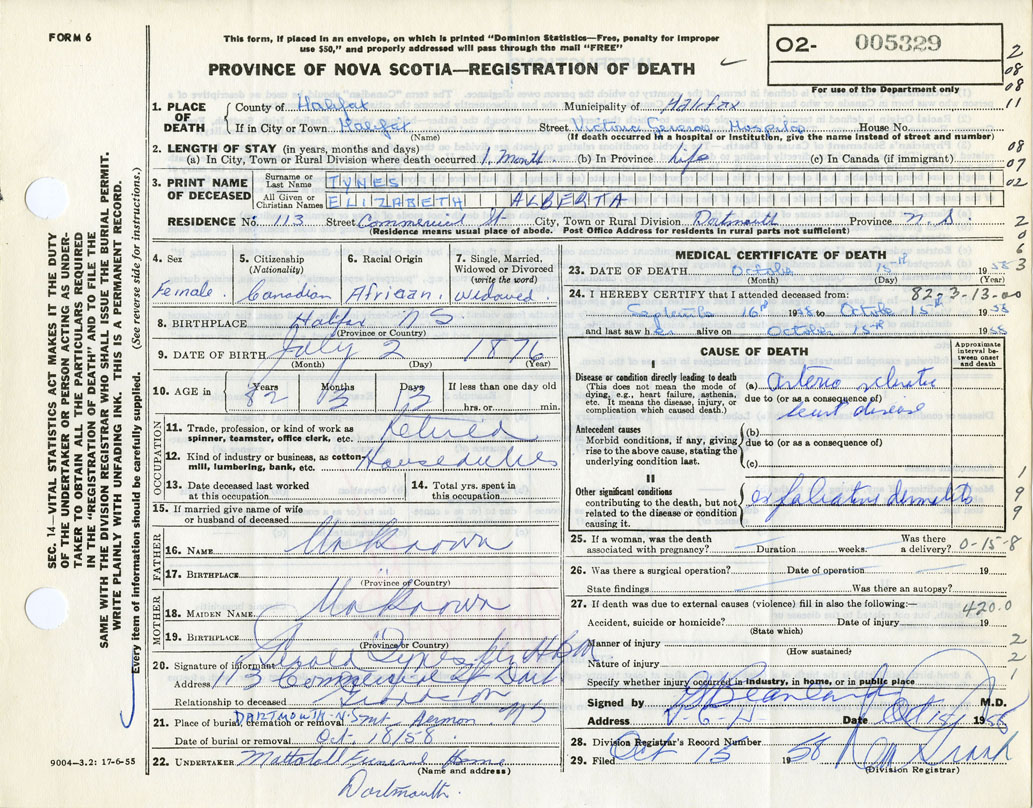 FORM 6
This form, if placed in an envelope, on which is printed "Dominion Statistics—Free, penalty for improper
use $50," and properly addressed will pass through the mail "FREE"
PROVINCE OF NOVA SCOTIA—REGISTRATION OF DEATH
O2- 005329
For use of the Department only
2
08
08
11
08
07
02
2
0
6
3
1. PLACE OF DEATH County of Halifax Municipality of Halifax
If in City or Town Halifax Street Victoria General Hospital House No.
(Name) (If death occurred in a hospital or Institution, give the name instead of street and number)
2. LENGTH OF STAY (in years, months and days)
(a) In City, Town or Rural Division where death occurred 1 Month (b) In Province Life (c) In Canada (if immigrant)
3. PRINT NAME OF DECEASED Surname or Last Name TYNES
All Given or Christian Names ELIZABETH ALBERTA
RESIDENCE No. 113 Street Commercial St City, Town or Rural Division Dartmouth Province N.S.
(Residence means usual place of abode. Post Office Address for residents in rural parts not sufficient)
4. Sex Female
5. Citizenship (Nationality) Canadian
6. Racial Origin African
7. Single, Married, Widowed or Divorced (write the word) Widowed
8. BIRTHPLACE Halifax N S
(Province or Country)
9. DATE OF BIRTH July 2 1876
(Month) (Day) (Year)
10. AGE in Years 82 Months 3 Days 13 If less than one day old
hrs. or min.
OCCUPATION
11. Trade, profession or kind of work as spinner, teamster, office clerk, etc. Retired
12. Kind of industry or business, as cotton-mill, lumbering, bank, etc. Houseduties
13. Date deceased last worked at this occupation
14. Total yrs. spent in this occupation
15. If married give name of wife or husband of deceased
FATHER
16. NAME Unknown
17. BIRTHPLACE
(Province or Country)
MOTHER
18. MAIDEN NAME Unknown
19. BIRTHPLACE
(Province or Country)
20. Signature of informant Tynes
Address 113 Commercial St Dart
Relationship to deceased
21. Place of burial, cremation or removal DARTMOUTH-N.S. Mt. Hermon NS
Date of burial or removal Oct. 18/58
22. UNDERTAKER Mattatall Funeral Home
(Name and address)
Dartmouth.
9004—3.2: 17-6-55
MEDICAL CERTIFICATE OF DEATH
23. DATE OF DEATH October 15th 1958
(Month) (Day) (Year)
24. I HEREBY CERTIFY that I attended deceased from: 82-3-13-00
September 16th 1958 to October 15th 1958
and last saw her alive on October 15th 1958
CAUSE OF DEATH
Approximate interval between onset and death
I
Disease or condition directly leading to death
(This does not mean the mode of dying, e.g., heart failure, asthenia, etc. It means the disease, injury, or complication which caused death.)
(a) Arterio sclerotic
due to (or as a consequence of)
heart disease
Antecedent causes
Morbid conditions, if any, giving rise to the above cause, stating the underlying condition last.
(b)
due to (or as a consequence of)
(c)
II
Other significant conditions
contributing to the death, but not related to the disease or condition causing it.
exfoliative dermatitis
1
9
9
25. If a woman, was the death associated with pregnancy? Duration weeks. Was there a delivery? 0-15-8
26. Was there a surgical operation? Date of operation 19
State findings Was there an autopsy?
27. If death was due to external causes (violence) fill in also the following:— 420.0
Accident, suicide or homicide? Date of injury 19
(State which)
Manner of injury
(How sustained)
Nature of injury
Specify whether injury occurred in industry, in home, or in public place
2
2
1
Signed by M.D.
Address V-G-H Date Oct 15 1958
28. Division Registrar's Record Number
29. Filed Oct 15 1958
(Division Registrar)
SEC. 14—VITAL STATISTICS ACT MAKES IT THE DUTY
OF THE UNDERTAKER OR PERSON ACTING AS UNDER-
TAKER TO OBTAIN ALL THE PARTICULARS REQUIRED
IN THE "REGISTRATION OF DEATH" AND TO FILE THE
SAME WITH THE DIVISION REGISTRAR WHO SHALL ISSUE THE BURIAL PERMIT.
WRITE PLAINLY WITH UNFADING INK. THIS IS A PERMANENT RECORD.
Every item of information should be carefully supplied. (See reverse side for instructions.)